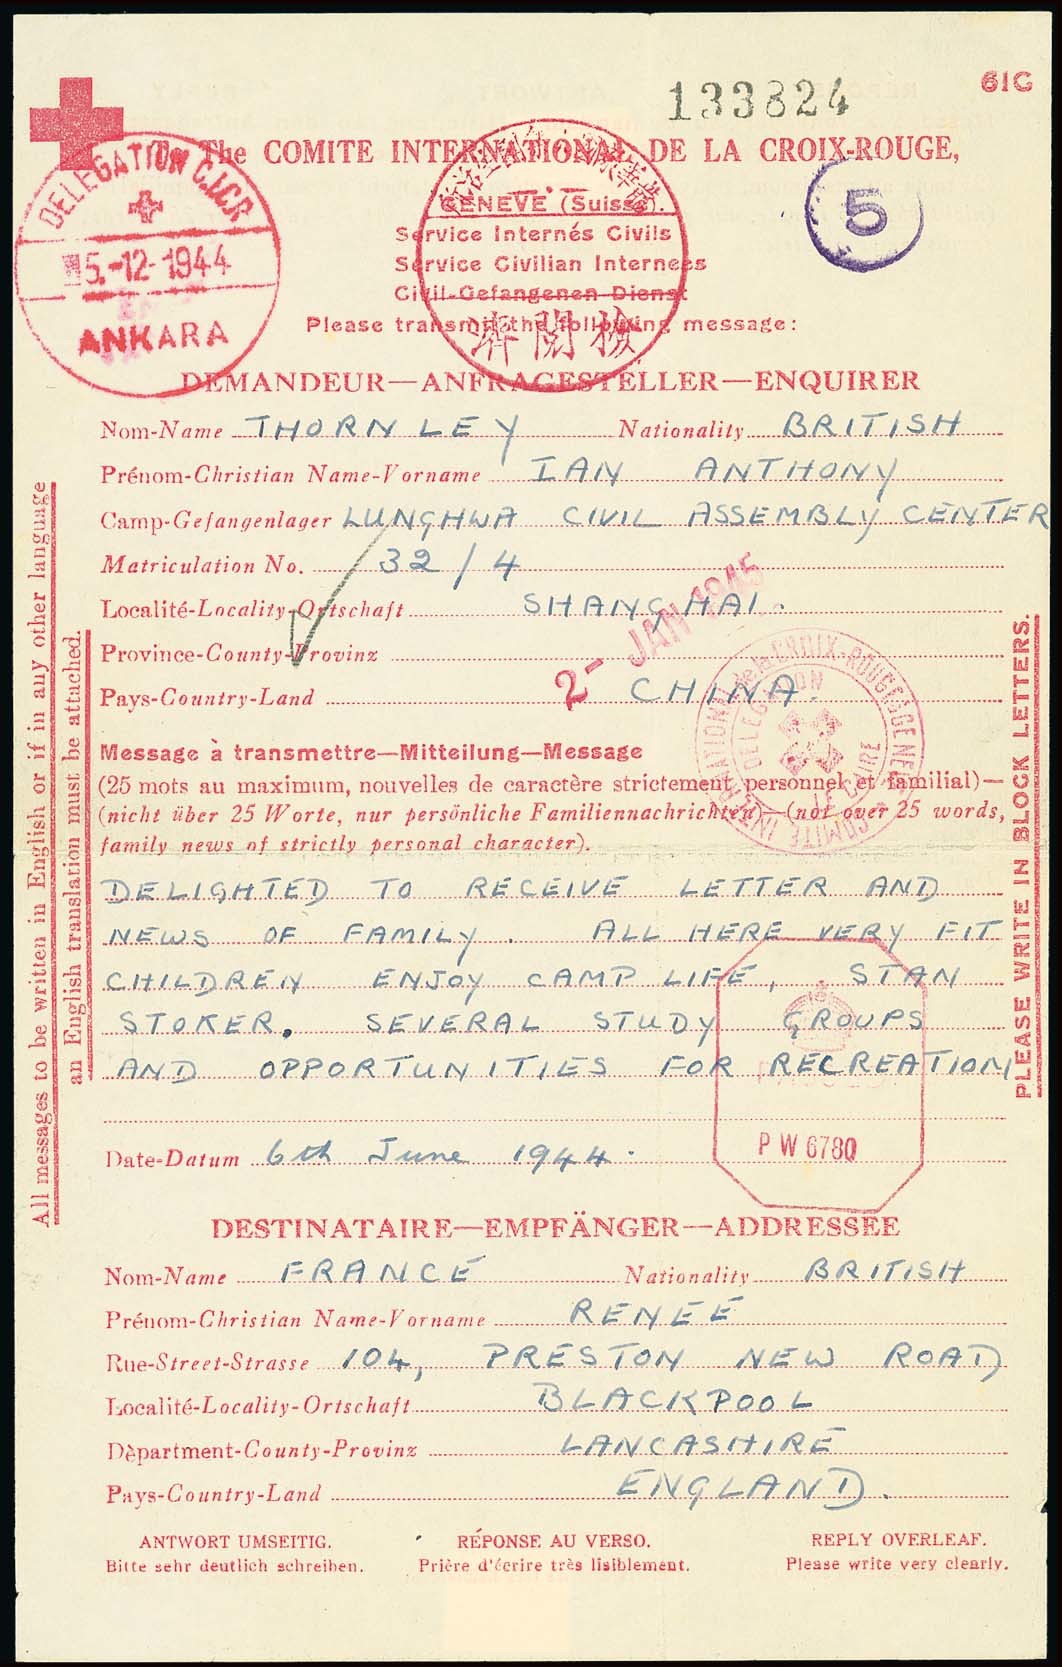 133824
61G
To The COMITE INTERNATIONAL DE LA CROIX-ROUGE,
DELEGATION C.I.C.R.
5.-12-1944
ANKARA
5
GENEVE (Suisse).
Service Internés Civils
Service Civilian Internees
Civil-Gefangenen-Dienst
Please transmit the following message:
檢閱濟
DEMANDEUR—ANFRAGESTELLER—ENQUIRER
Nom-Name THORNLEY Nationality BRITISH
Prénom-Christian Name-Vorname IAN ANTHONY
Camp-Gefangenlager LUNGHWA CIVIL ASSEMBLY CENTER
Matriculation No. 32/4
Localité-Locality-Ortschaft SHANGHAI.
Province-County-Provinz
2- JAN 1945
Pays-Country-Land CHINA.
COMITÉ INTERNATIONAL de la CROIX-ROUGE GENEVE
DELEGATION
LE CAIRE
Message à transmettre—Mitteilung—Message
(25 mots au maximum, nouvelles de caractère strictement personnel et familial)—
(nicht über 25 Worte, nur persönliche Familiennachrichten)—(not over 25 words,
family news of strictly personal character).
DELIGHTED TO RECEIVE LETTER AND
NEWS OF FAMILY. ALL HERE VERY FIT
CHILDREN ENJOY CAMP LIFE, STAN
STOKER. SEVERAL STUDY GROUPS
AND OPPORTUNITIES FOR RECREATION
PW 6780
Date-Datum 6th June 1944.
DESTINATAIRE—EMPFÄNGER—ADDRESSEE
Nom-Name FRANCE Nationality BRITISH
Prénom-Christian Name-Vorname RENEE
Rue-Street-Strasse 104, PRESTON NEW ROAD
Localité-Locality-Ortschaft BLACKPOOL
Dèpartment-County-Provinz LANCASHIRE
Pays-Country-Land ENGLAND.
ANTWORT UMSEITIG. RÉPONSE AU VERSO. REPLY OVERLEAF.
Bitte sehr deutlich schreiben. Prière d'écrire très lisiblement. Please write very clearly.
All messages to be written in English or if in any other language
an English translation must be attached.
PLEASE WRITE IN BLOCK LETTERS.